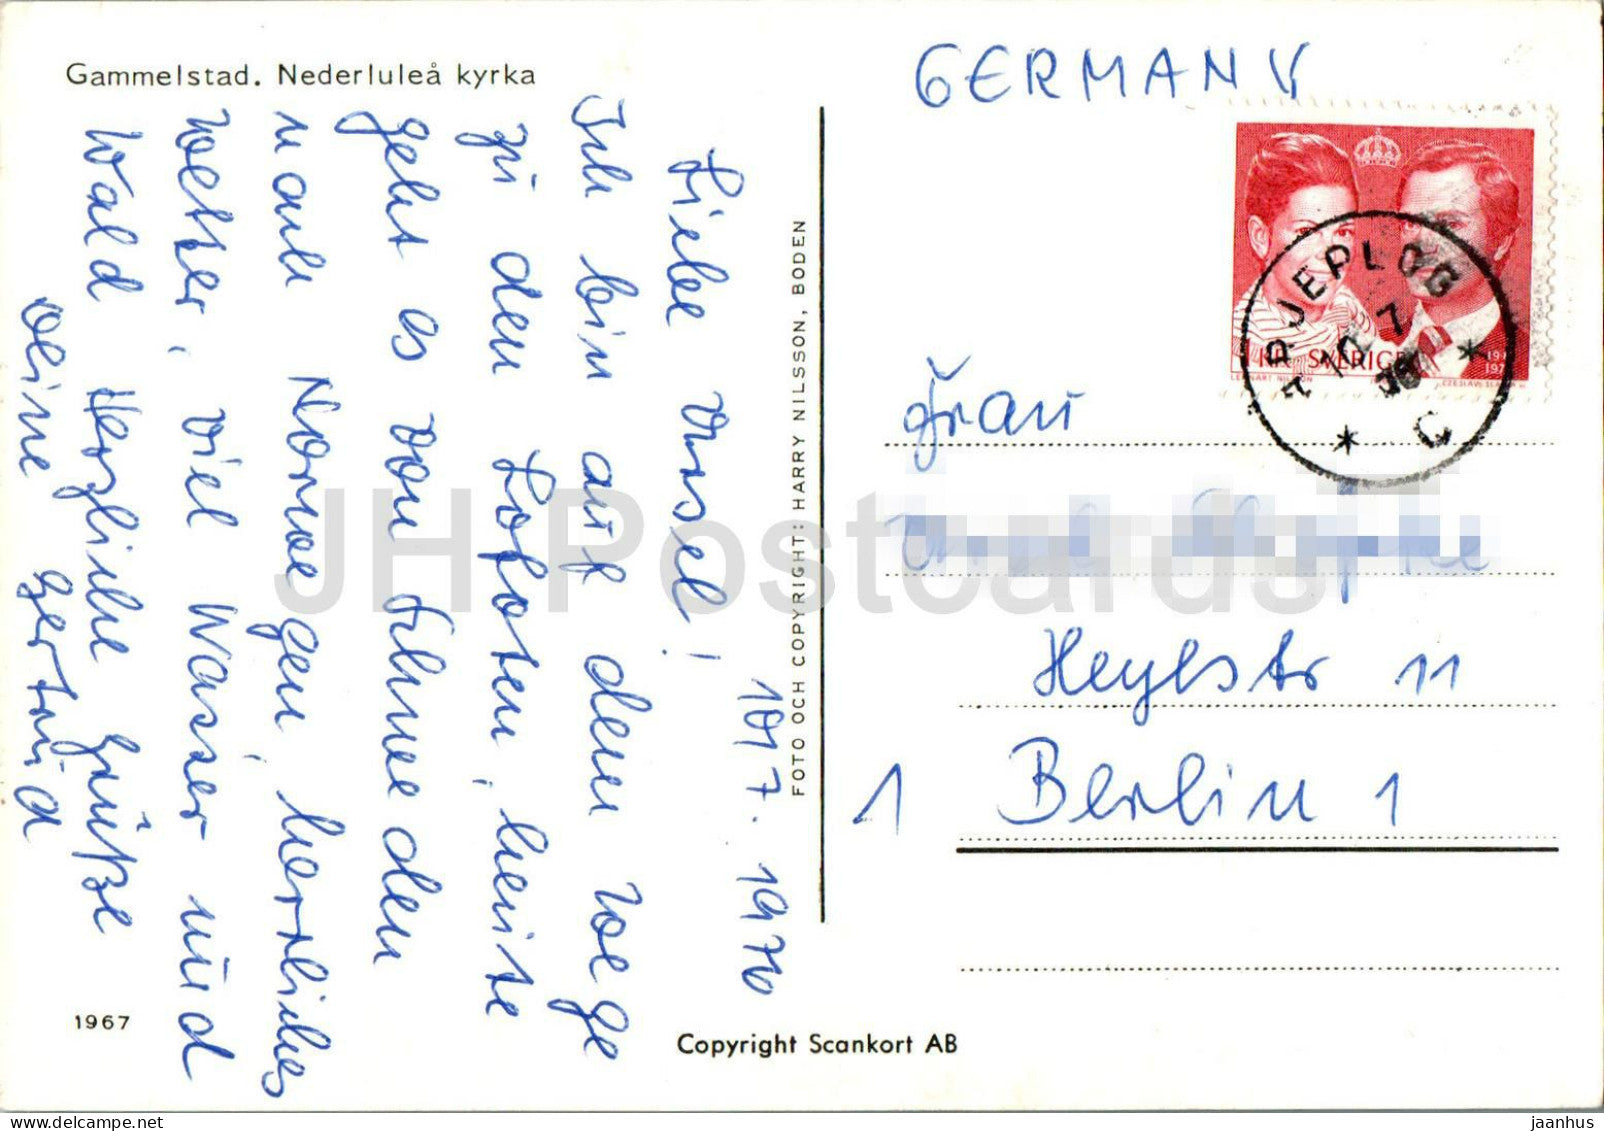 Gammelstad. Nederluleå kyrka
10/7. 1976
Liebe Ursel!
Ich bin auf dem Wege
zu den Lofoten, heute
geht es von Schweden
nach Norwegen, herrliches
Wetter, viel Wasser und
Wald Herzliche Grüße
Deine Gertrud
1967
FOTO OCH COPYRIGHT: HARRY NILSSON, BODEN
Copyright Scankort AB
GERMANY
1 KR SVERIGE
LENNART NILSSON
CZESLAW SLANIA
ARJEPLOG
7
76
C
Frau
Heylstr 11
1 Berlin 1
JH Postcards
jaanhus